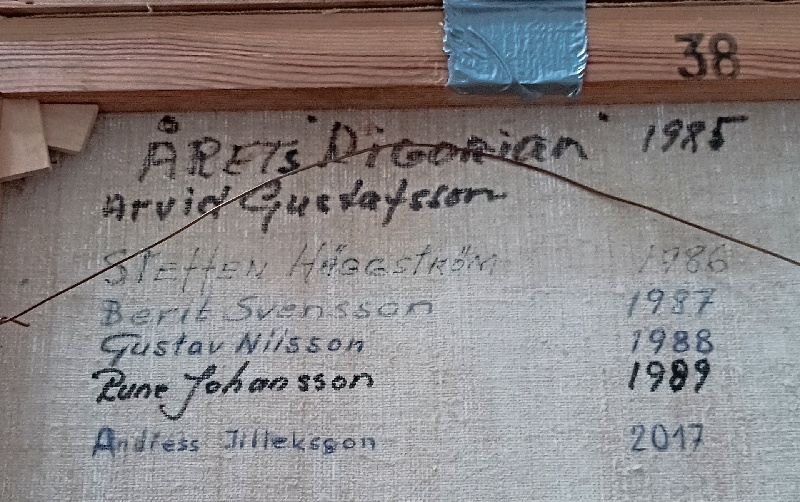 38
ÅRETs "Digonian" 1985
Arvid Gustafsson
STEFFEN HÄGGSTRÖM 1986
Berit Svensson 1987
Gustav Nilsson 1988
Rune Johansson 1989
Andress Jilleksson 2017